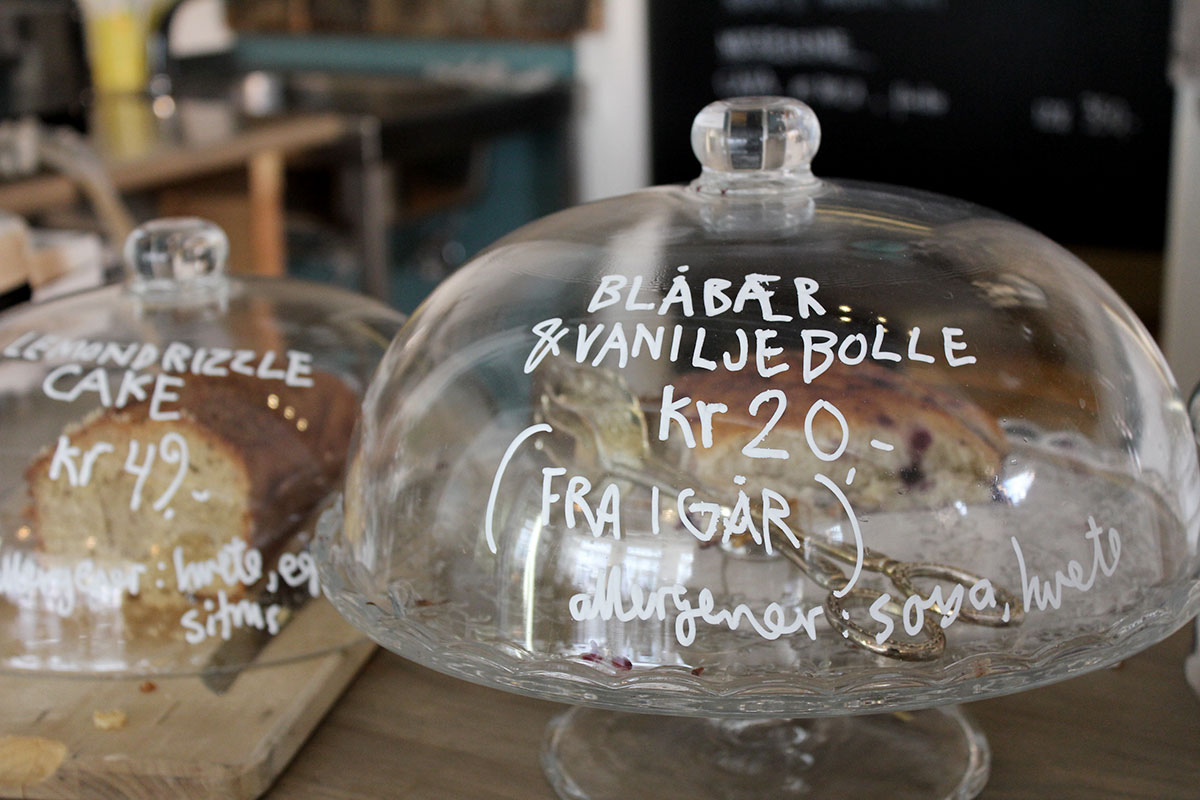 LEMONDRIZZLE
CAKE
kr 49.-
Allergener: hvete, eg
sitrus
BLÅBÆR
& VANILJEBOLLE
kr 20,-
(FRA I GÅR)
allergener: soya, hvete